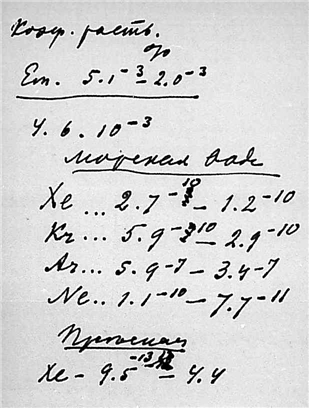 Коэф. раств.
%
Em. 5.1⁻³ – 2.0⁻³
4.6.10⁻³
Морская вода
Xe ... 2.7⁻¹⁰ – 1.2⁻¹⁰
Kr ... 5.9⁻¹⁰ – 2.9⁻¹⁰
Ar ... 5.9⁻⁷ – 3.4⁻⁷
Ne .. 1.1⁻¹⁰ – 7.7⁻¹¹
Пресная
Xe – 9.5⁻¹³ – 4.4